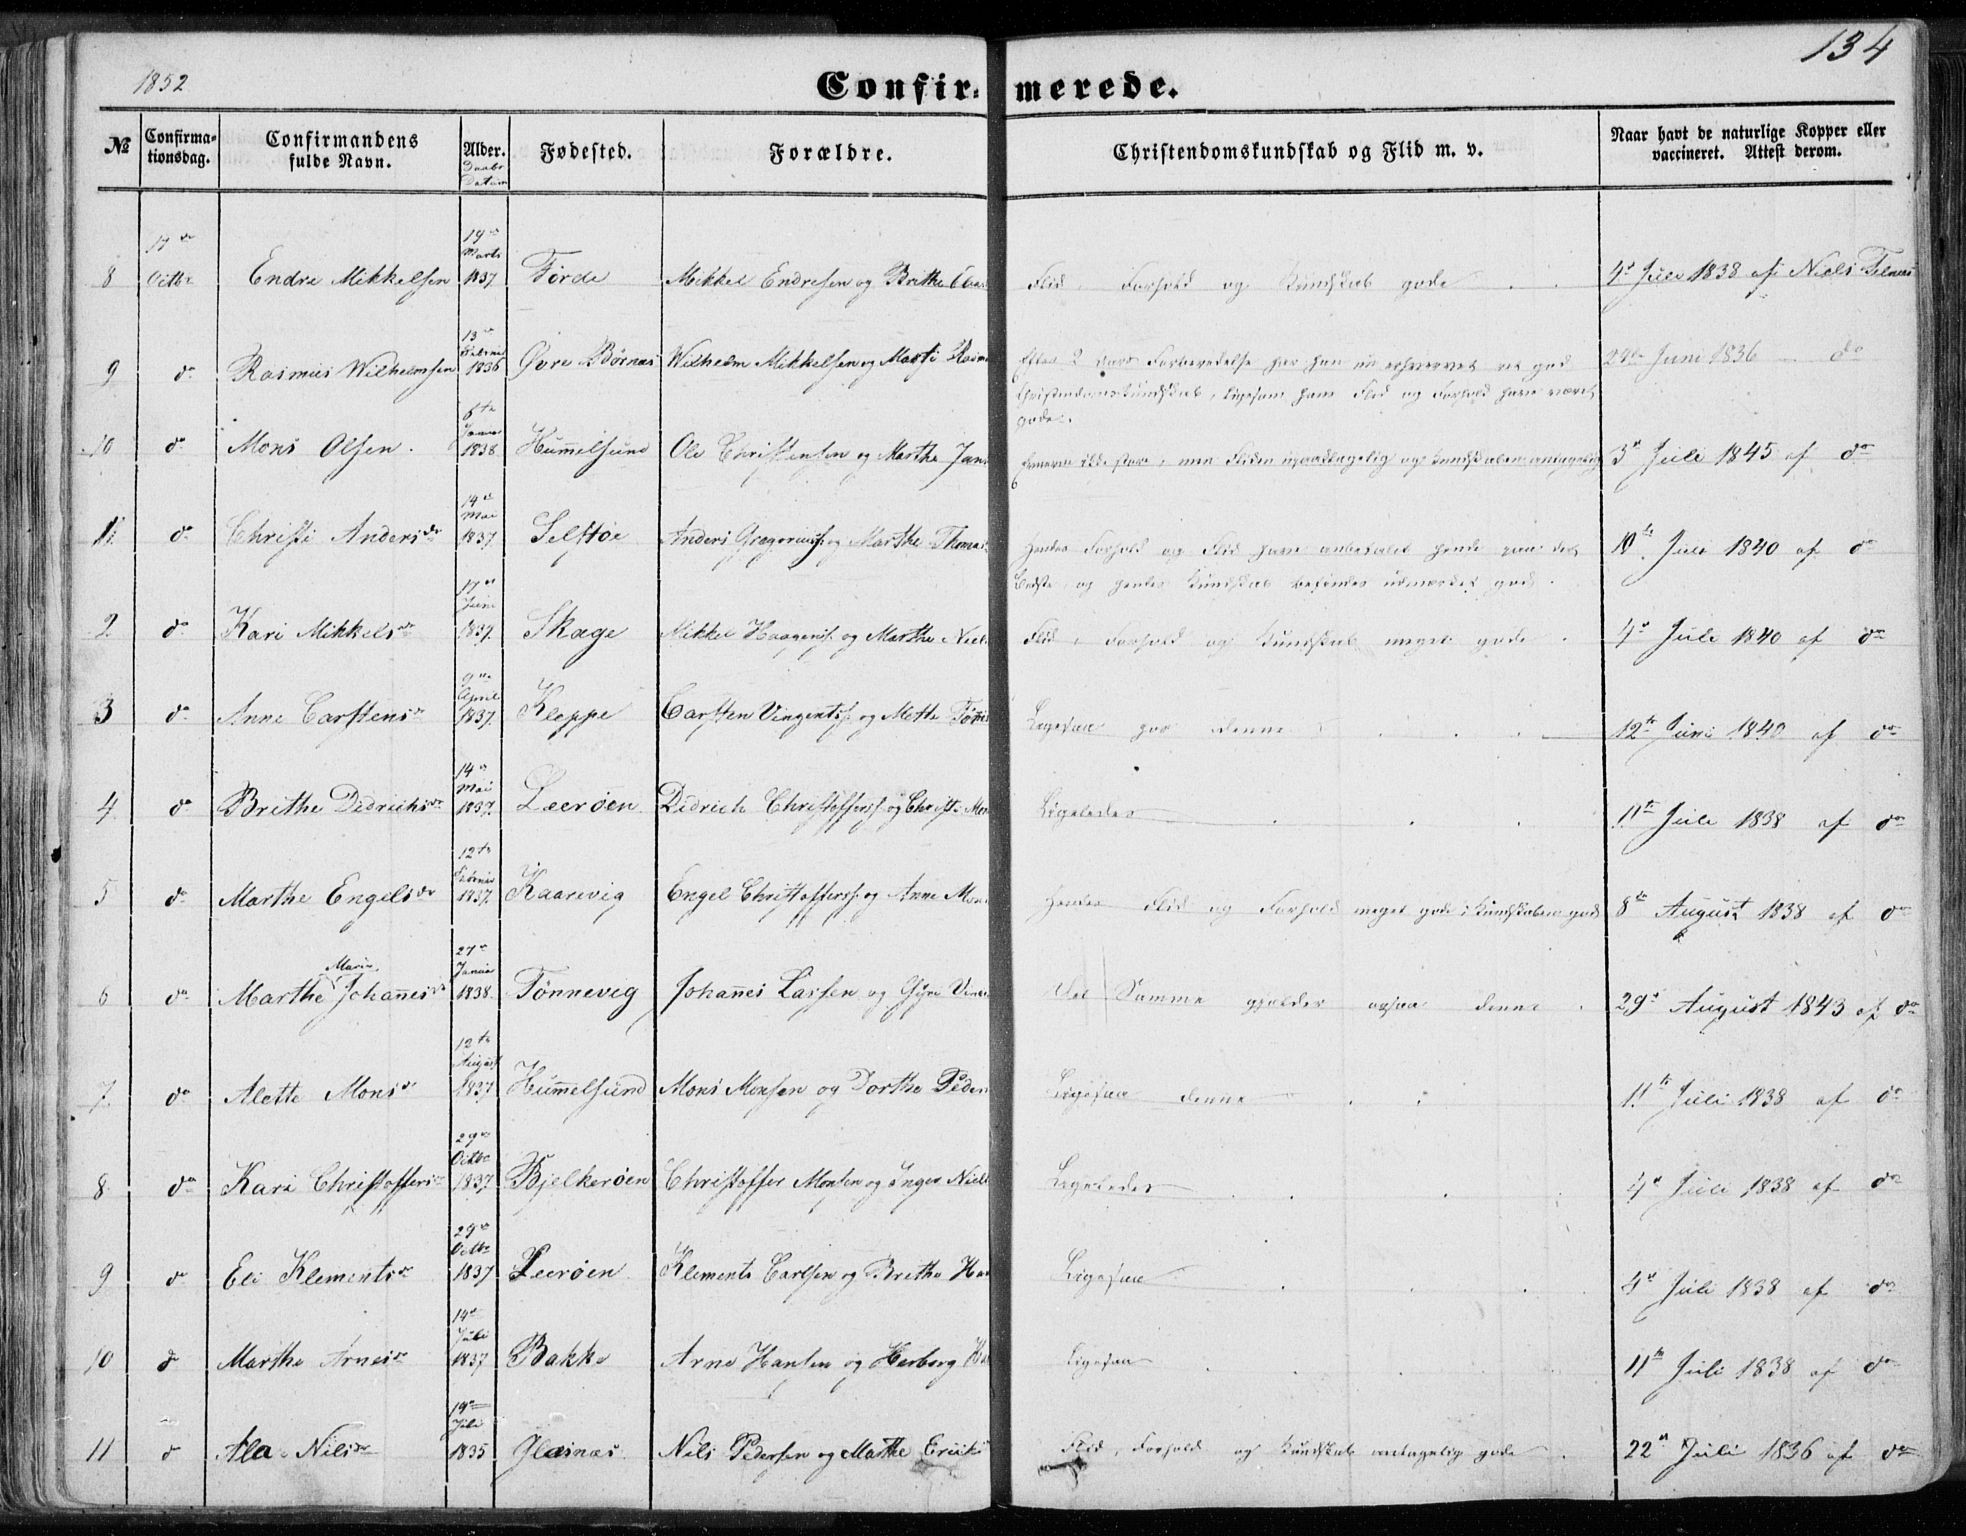 1852
134
Confir- merede.
№ Confirma-tionsdag. Confirmandens fulde Navn. Alder. Daabs Datum Fødested. Forældre. Christendomskundskab og Flid m. v. Naar havt de naturlige Kopper eller vaccineret. Attest derom.
8 17de Octbr Endre Mikkelsen 19de Marts 1837. Førde Mikkel Endresen og Brithe Flid, Forhold og Kundskab gode 4de Juli 1838 af Niels
9 do Rasmus Wilhelmsen 13de 1836 Øvre Børnæs Wilhelm Mikkelsen og Marti Rasm Efter 2 Aars Forberedelse har han nu erhvervet et god Juni 1836 do
Christendomskundskab, ligesom hans Flid og Forhold have været
gode.
10 do Mons Olsen. 6te Januar 1838 Hummelsund Ole Christensen og Marthe Jans Evnerne ikke store, men Fliden upaaklagelig og Kundskaben antagelig 3de Juli 1845 af do
11. do Christi Andersdr 14de Mai 1837. Selstøe Anders Gregoriuss. og Marthe Thomas Hendes Forhold og Flid have anbefalet hende paa det 10de Juli 1840 af do
Bedste, og hendes Kundskab befindes udmærket god.
2 do Kari Mikkelsdr 17de Juni 1837. Skage Mikkel Haagens. og Marthe Niels Flid, Forhold og Kundskab meget gode. 4de Juli 1840 af do
3 do Anne Carstensdr 9de April 1837. Kleppe Carsten Vingents. og Mette Tønnes Ligesaa har denne 12te Juni 1840 af do
4 do Brithe Didrichsdr 14de Mai 1837. Leerøen Didrich Christoffers. og Christi Mon Ligeledes 11te Juli 1838 af do
5 do Marthe Engelsdr 12te Februar 1837. Kaarevig Engel Christoffers. og Anne Mons Hendes Flid og Forhold meget gode; Kundskaben god 8de August 1838 af do
6 do Marthe Marie Johannesdr 27de Januar 1838. Tønnevig Johannes Larsen og Gyri Det Samme gjælder ogsaa denne. 29de August 1843 af do
7. do Alette Monsdr 12te August 1837 Hummelsund Mons Monsen og Dorthe Peders Ligesaa denne 11te Juli 1838 af do
8 do Kari Christoffersdr 29de Octbr 1837 Bjelkerøen Christoffer Monsen og Inger Niels Ligeledes 4de Juli 1838 af do
9 do Eli Klementsdr 29de Octbr 1837 Leerøen Klements Carlsen og Brethe Ha Ligesaa 4de Juli 1838 af do
10 do Marthe Arnesdr 14de Juli 1837 Bakke Arne Hansen og Herborg Ligesaa 11te Juli 1838 af do
11 do Ala Nilsdr 19de Juli 1835 Glesnæs. Nils Pedersen og Marthe Eriks Flid, Forhold og Kundskab antagelig gode 22de Juli 1836 af do